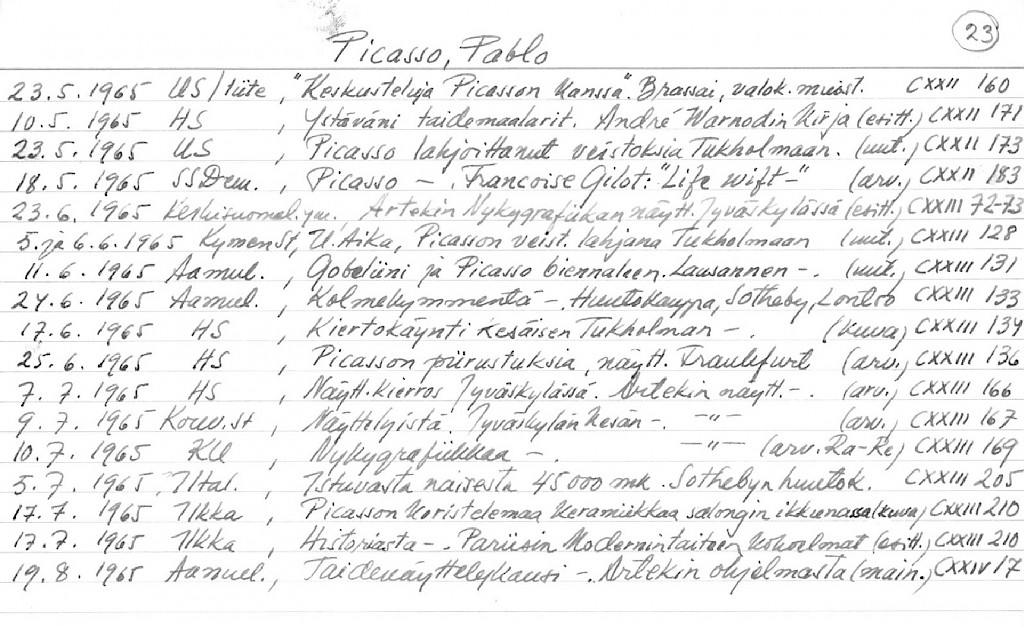 23
Picasso, Pablo
23.5.1965 US/liite, "Keskusteluja Picasson kanssa". Brassai, valok. muist. CXXII 160
10.5.1965 HS, Ystäväni taidemaalarit. André Warnodin kirja (esitt.) CXXII 171
23.5.1965 US, Picasso lahjoittanut veistoksia Tukholmaan. (uut.) CXXII 173
18.5.1965 SSDem., Picasso – . Francoise Gilot: "Life wift-" (arv.) CXXII 183
23.6.1965 Keskisuomal. ym. Artekin Nykygrafiikan näytt. Jyväskylässä (esitt.) CXXIII 72-73
5. ja 6.6.1965 KymenSt, U. Aika, Picasson veist. lahjana Tukholmaan (uut.) CXXIII 128
11.6.1965 Aamul., Gobeliini ja Picasso biennaleen. Lausannen – . (uut.) CXXIII 131
24.6.1965 Aamul., Kolmekymmentä – . Huutokauppa, Sotheby, Lontoo CXXIII 133
17.6.1965 HS, Kiertokäynti kesäisen Tukholman – . (kuva) CXXIII 134
25.6.1965 HS, Picasson piirustuksia, näytt. Frankfurt (arv.) CXXIII 136
7.7.1965 HS, Näytt.kierros Jyväskylässä. Artekin näytt. – . (arv.) CXXIII 166
9.7.1965 Kouv.st, Näyttelyistä. Jyväskylän Kesän – . –"– (arv.) CXXIII 167
10.7.1965 KU Nykygrafiikkaa – . –"– (arv. Ra-Re) CXXIII 169
5.7.1965 Iltal., Istuvasta naisesta 45000 mk. Sothebyn huutok. CXXIII 205
17.7.1965 Ilkka, Picasson koristelemaa keramiikkaa salongin ikkunassa (kuva) CXXIII 210
17.7.1965 Ilkka, Historiasta – . Pariisin Modernin taiteen kokoelmat (esitt.) CXXIII 210
19.8.1965 Aamul., Taidenäyttelykausi – . Artekin ohjelmasta (main.) CXXIV 17